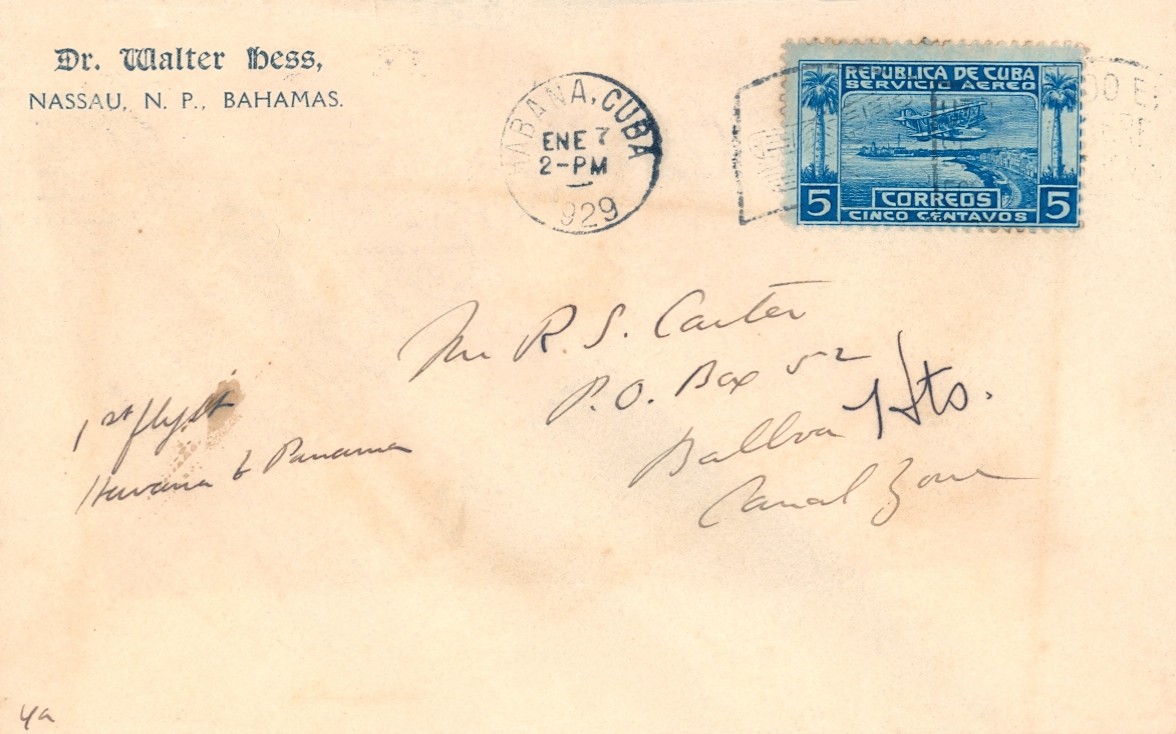 Dr. Walter Hess,
NASSAU, N. P., BAHAMAS.
HABANA, CUBA
ENE 7
2-PM
1929
REPUBLICA DE CUBA
SERVICIO AEREO
5 CORREOS 5
CINCO CENTAVOS
Mr R. S. Carter
P.O. Box 52
Balboa Hts.
Canal Zone
1st flight
Havana to Panama
4a